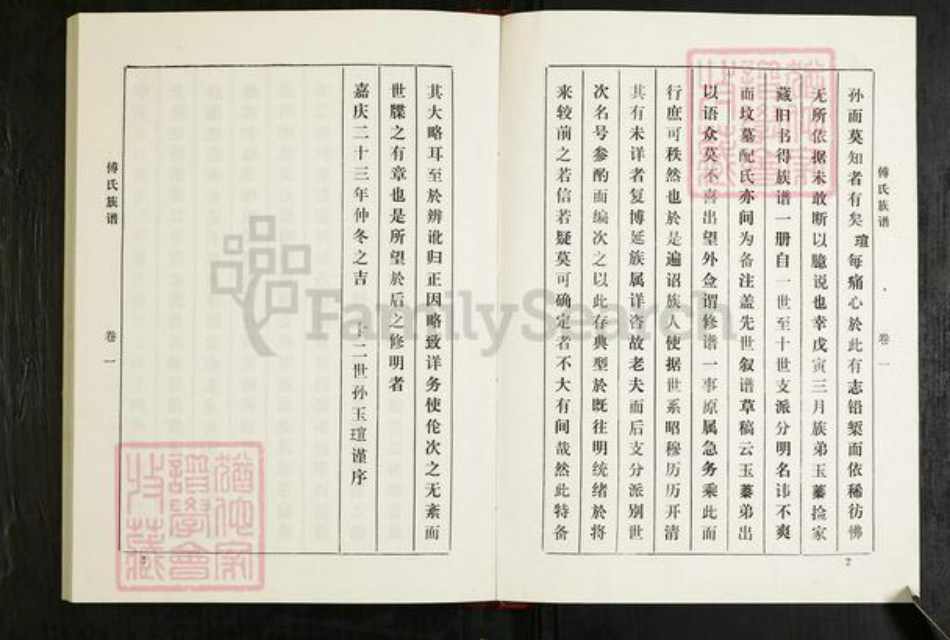 傅氏族谱
卷一
孙而莫知者有矣瑄每痛心於此有志铅椠而依稀彷彿
无所依据未敢断以臆说也幸戊寅三月族弟玉蓁捡家
藏旧书得族谱一册自一世至十世支派分明名讳不爽
而坟墓配氏亦间为备注盖先世叙谱草稿云玉蓁弟出
以语众莫不喜出望外佥谓修谱一事原属急务乘此而
行庶可秩然也於是遍诏族人使据世系昭穆历历开清
其有未详者复博延族属详咨故老夫而后支分派别世
次名号参酌而编次之以此存典型於既往明统绪於将
来较前之若信若疑莫可确定者不大有间哉然此特备
2
其大略耳至於辨讹归正因略致详务使伦次之无紊而
世牒之有章也是所望於后之修明者
嘉庆二十三年仲冬之吉 十二世孙玉瑄谨序
傅氏族谱
卷一
FamilySearch
猶他家
譜學會
收藏